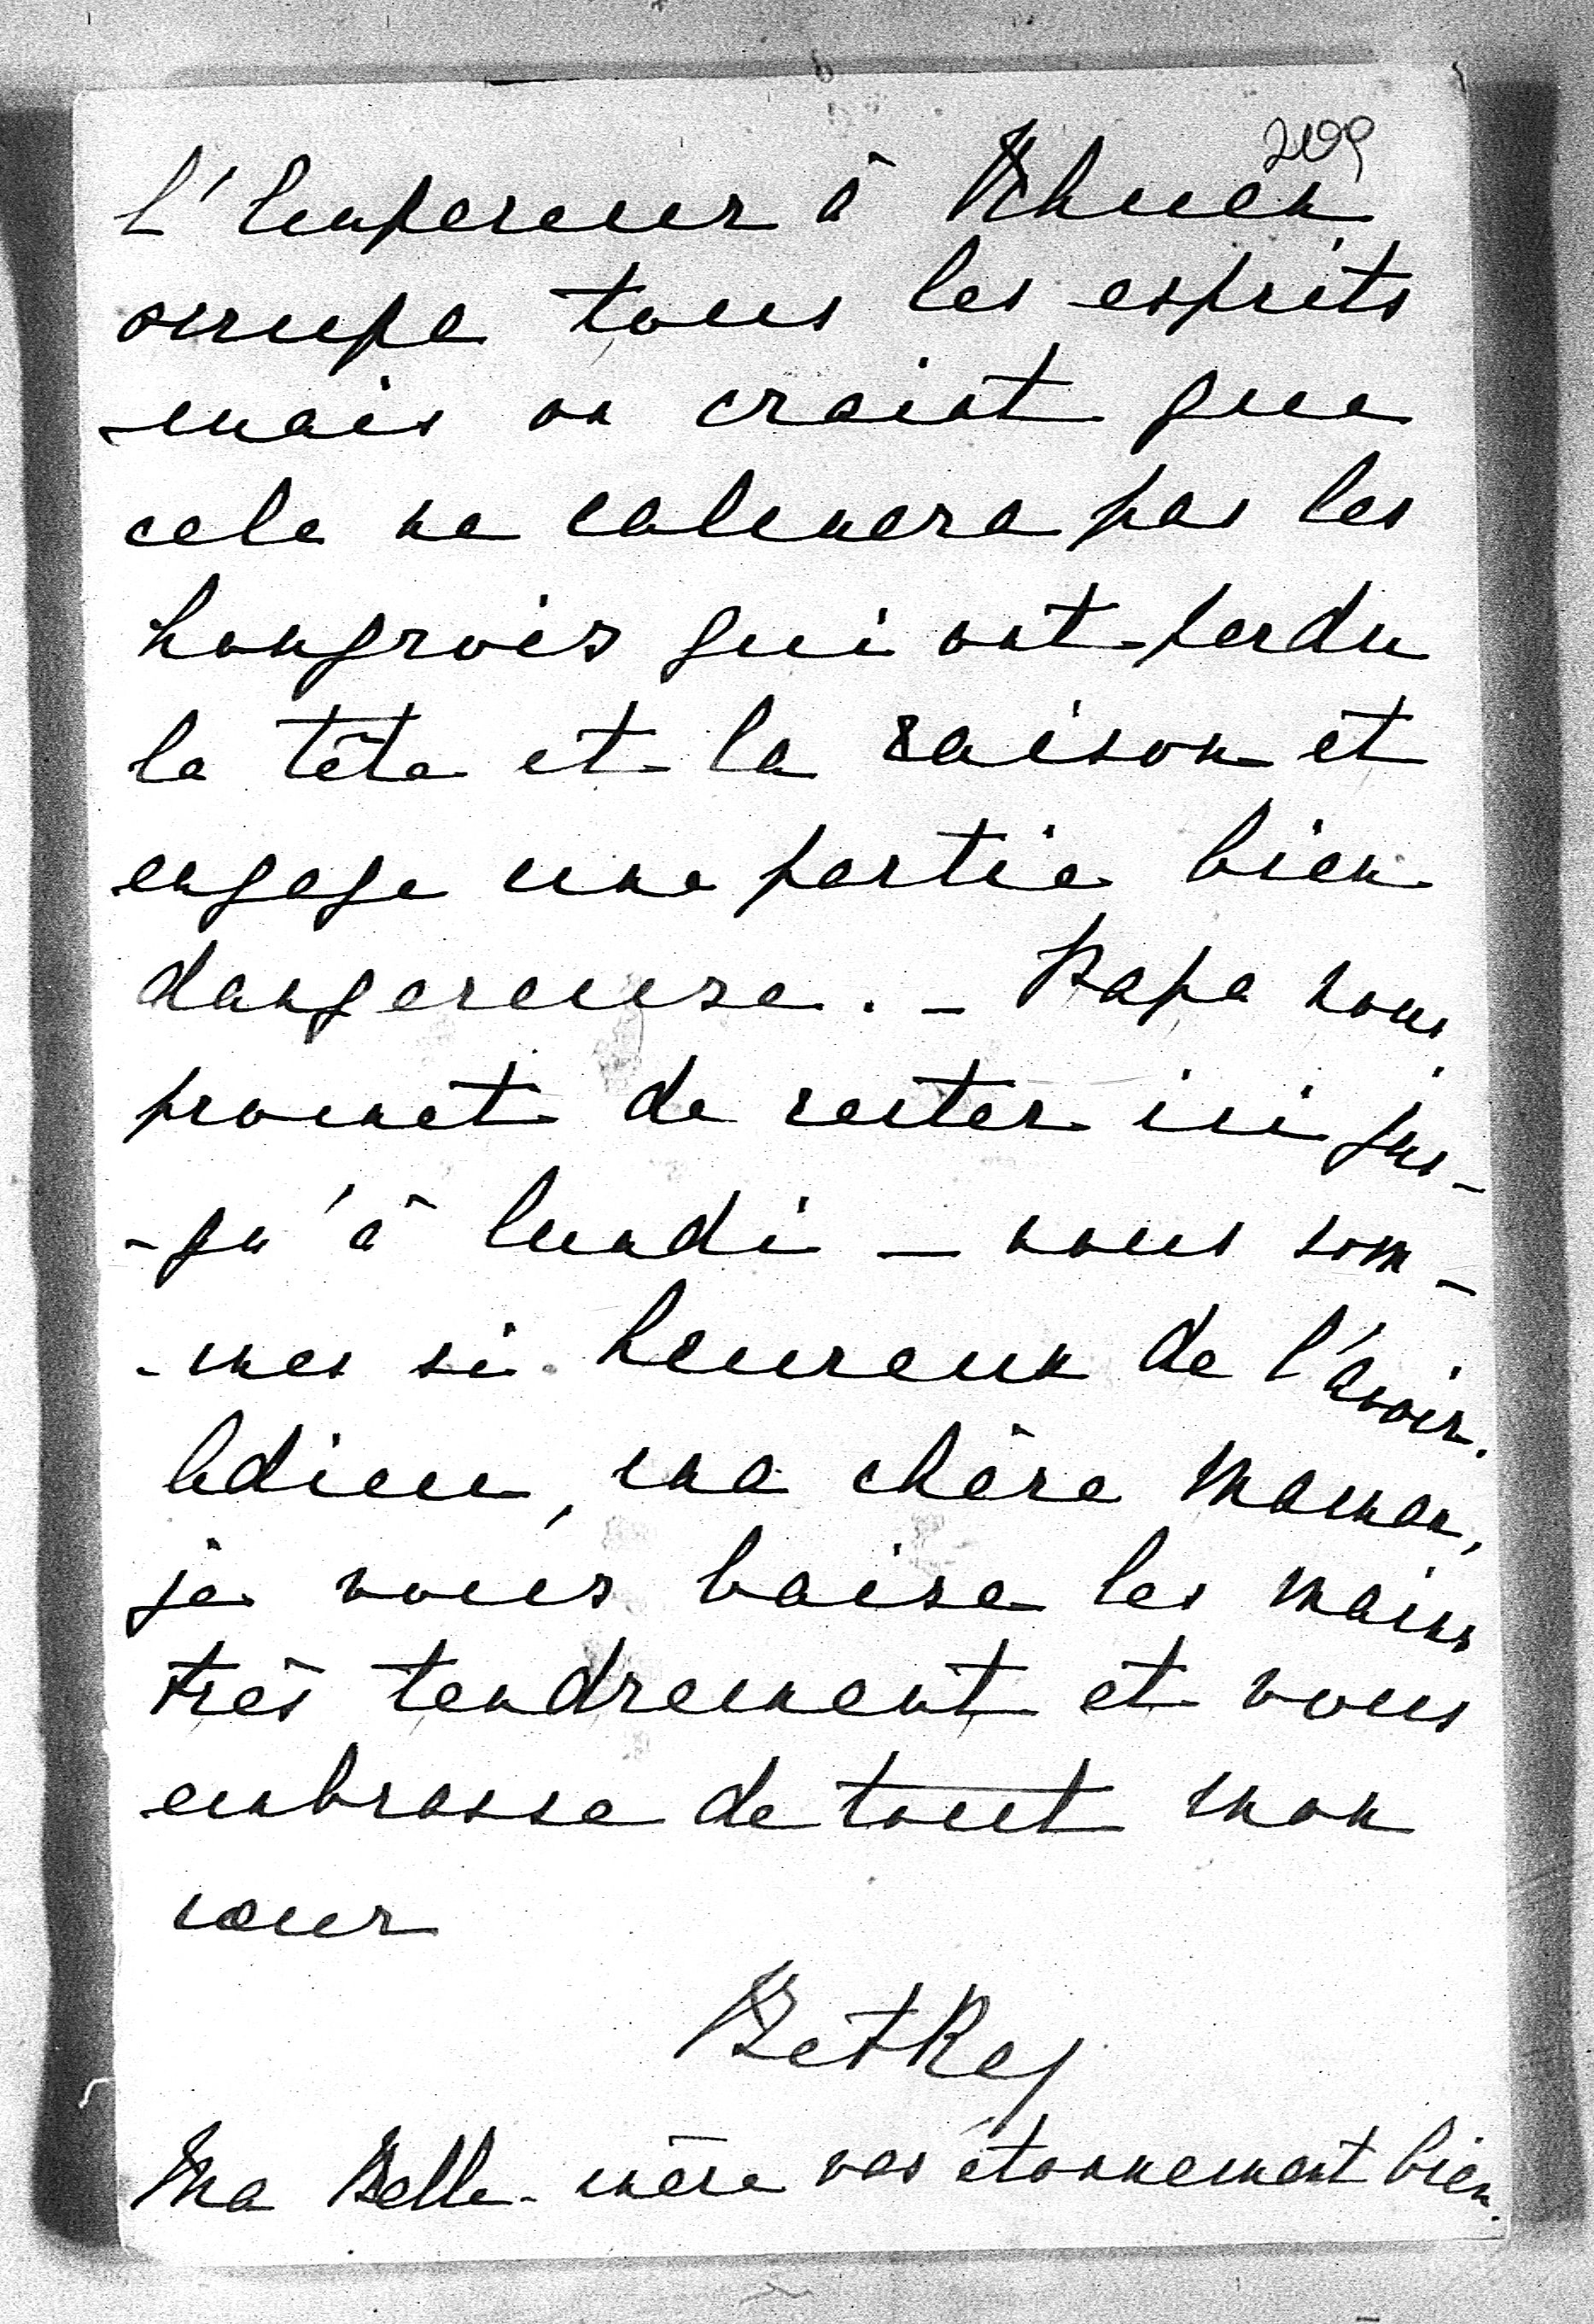 2109
L'Empereur à Khuen
occupe tous les esprits
mais on craint que
cela ne calmera pas les
hongrois qui ont perdu
la tête et la raison et
engage une partie bien
dangereuse. - Papa nous
promet de rester ici jus-
-qu'à lundi - nous som-
-mes si heureux de l'avoir.
Adieu, ma chère Maman,
je vous baise les mains
très tendrement et vous
embrasse de tout mon
cœur
Betka
Ma Belle-mère vas étonnement bien.